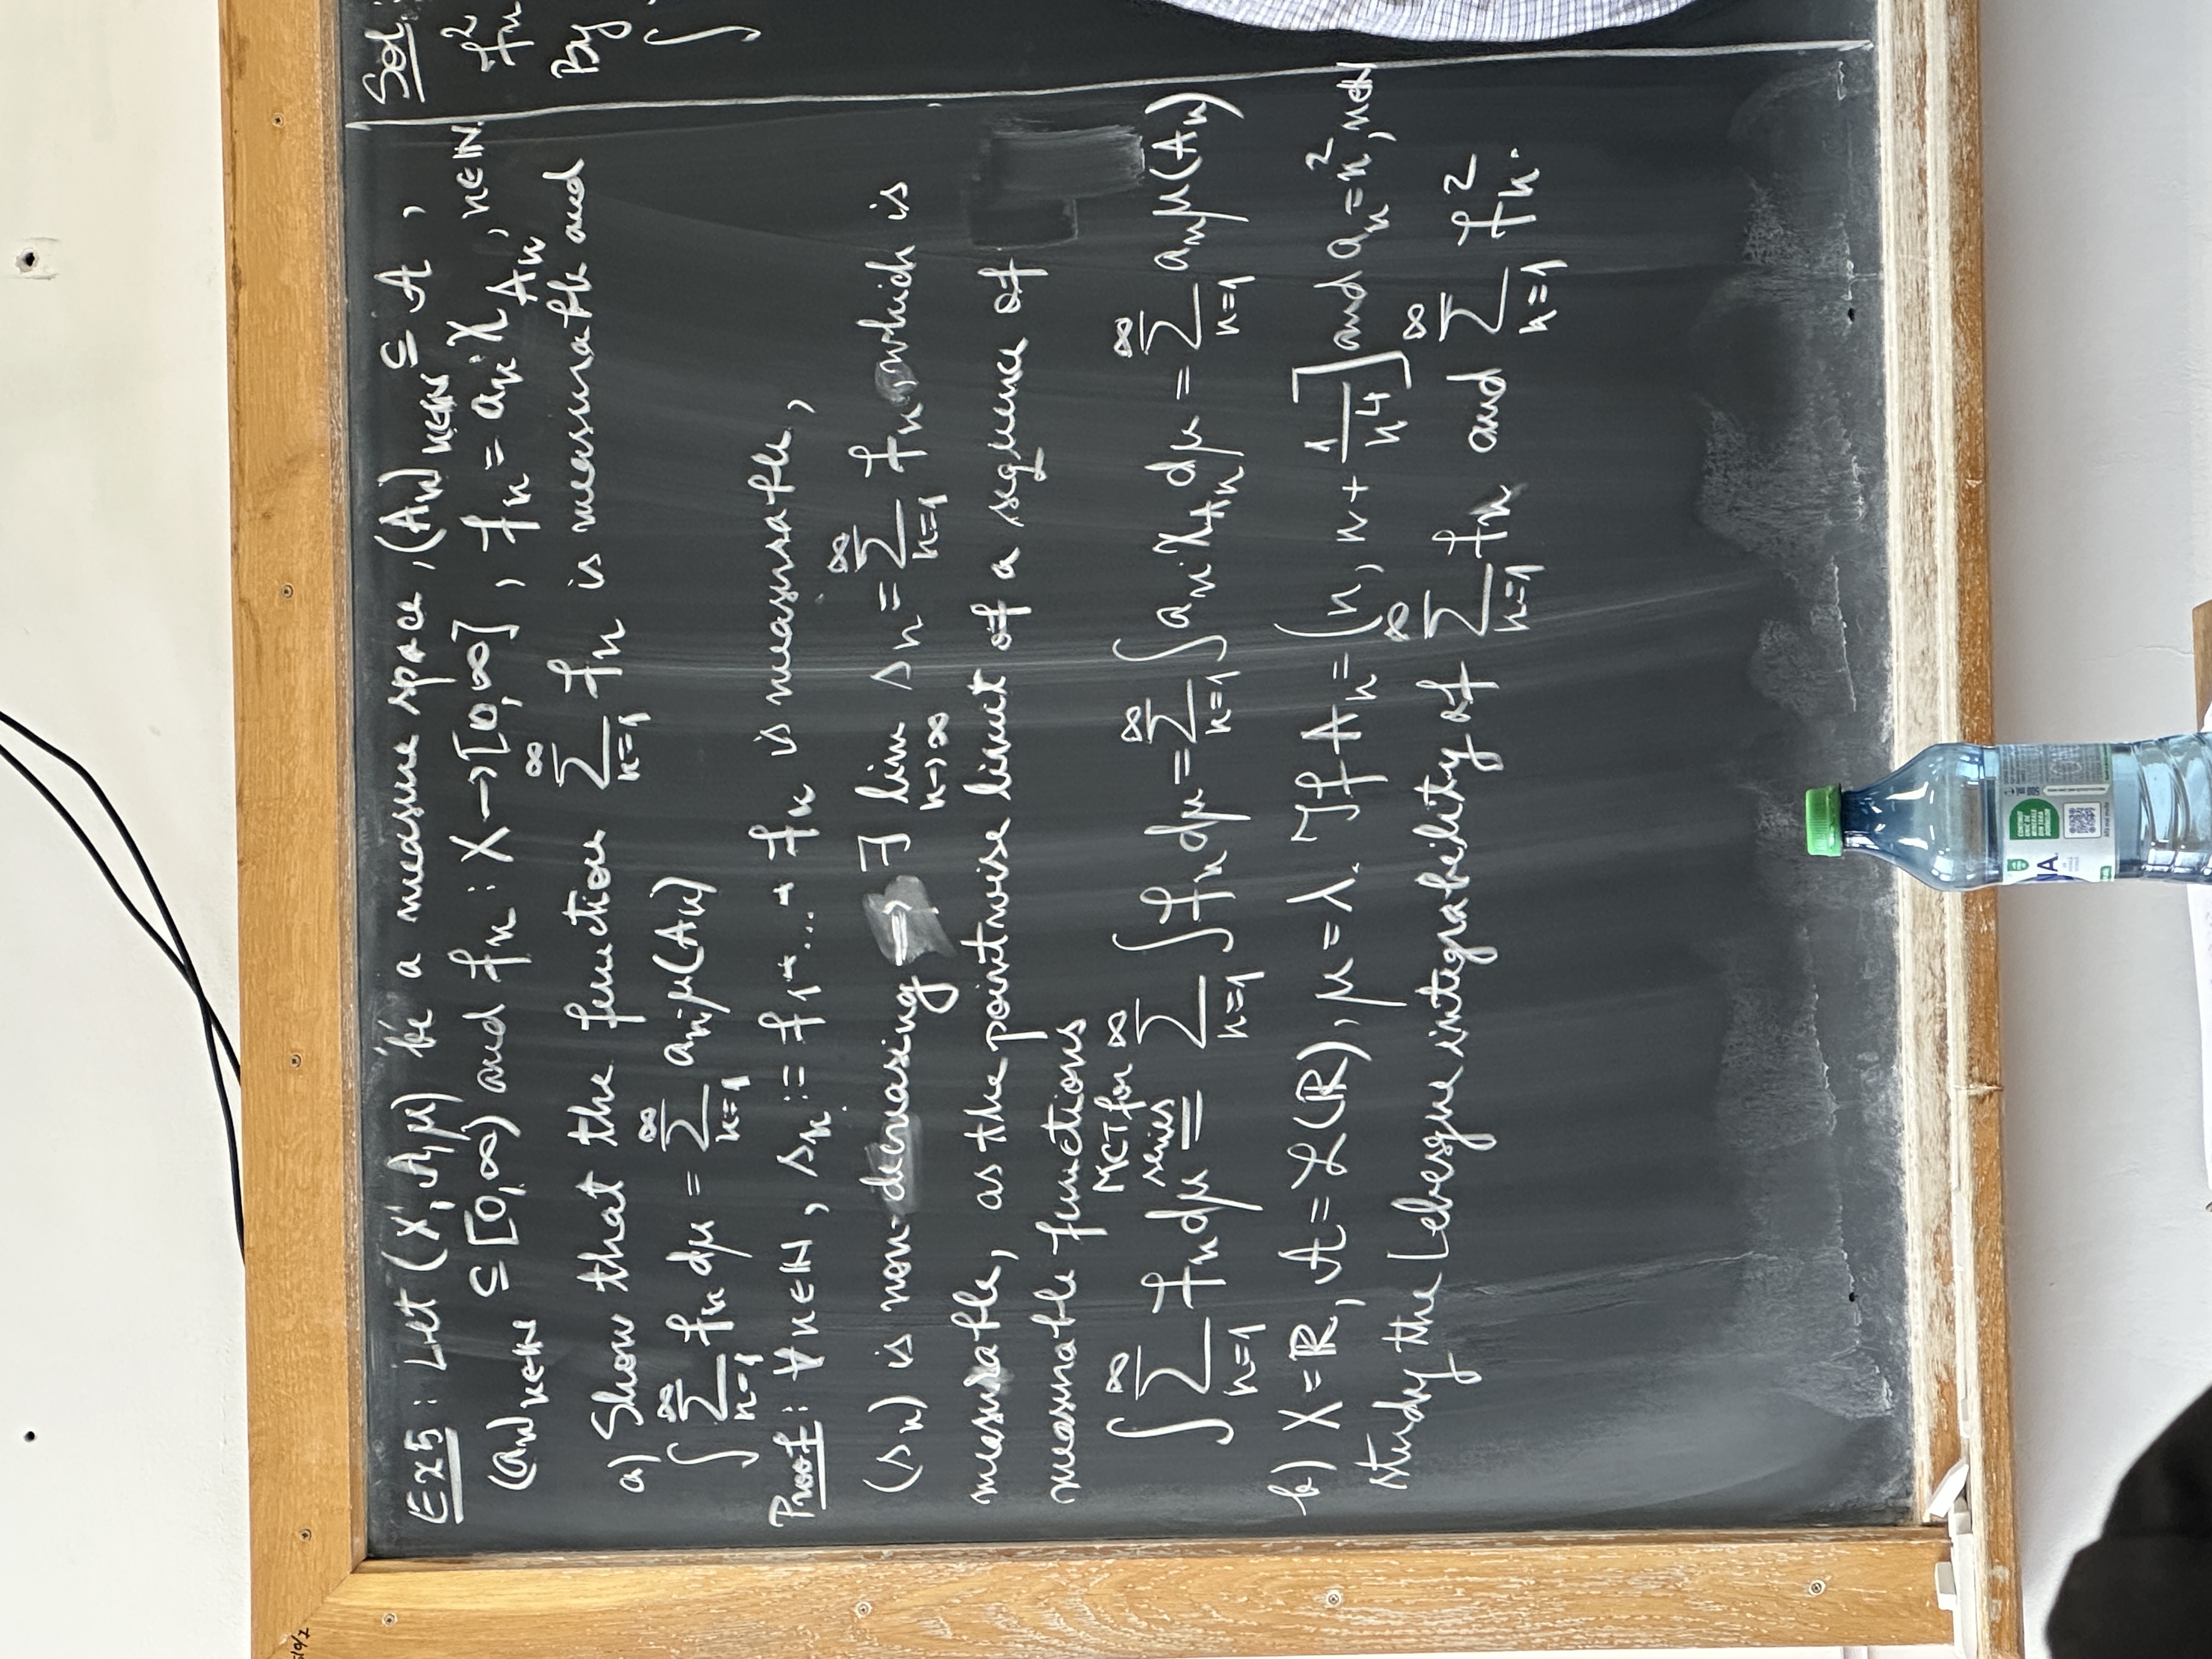 510/2
Ex5: Let (X, A, μ) be a measure space, (Aₙ)ₙ∈ℕ ⊆ A,
(aₙ)ₙ∈ℕ ⊆ [0,∞) and fₙ : X → [0,∞], fₙ = aₙ·χ_Aₙ, n∈ℕ.
a) Show that the function ∑_{n=1}^{∞} fₙ is measurable and
∫ ∑_{n=1}^{∞} fₙ dμ = ∑_{n=1}^{∞} aₙ·μ(Aₙ)
Proof: ∀n∈ℕ, sₙ := f₁+...+fₙ is measurable,
(sₙ) is non-decreasing ⟹ ∃ lim_{n→∞} sₙ = ∑_{n=1}^{∞} fₙ, which is
measurable, as the pointwise limit of a sequence of
measurable functions
∫ ∑_{n=1}^{∞} fₙ dμ = (MCT for series) ∑_{n=1}^{∞} ∫ fₙ dμ = ∑_{n=1}^{∞} ∫ aₙ·χ_Aₙ dμ = ∑_{n=1}^{∞} aₙ μ(Aₙ)
b) X=ℝ, A=ℒ(ℝ), μ=λ. If Aₙ = (n, n + 1/n⁴] and aₙ = n², n∈ℕ
study the Lebesgue integrability of ∑_{n=1}^{∞} fₙ and ∑_{n=1}^{∞} fₙ².
Sol:
fₙ²
By
∫
CONȚINUT
UNIC DE
MINERALE
DIN ȚARA
DORNELOR
NA
500 ml
Află mai multe